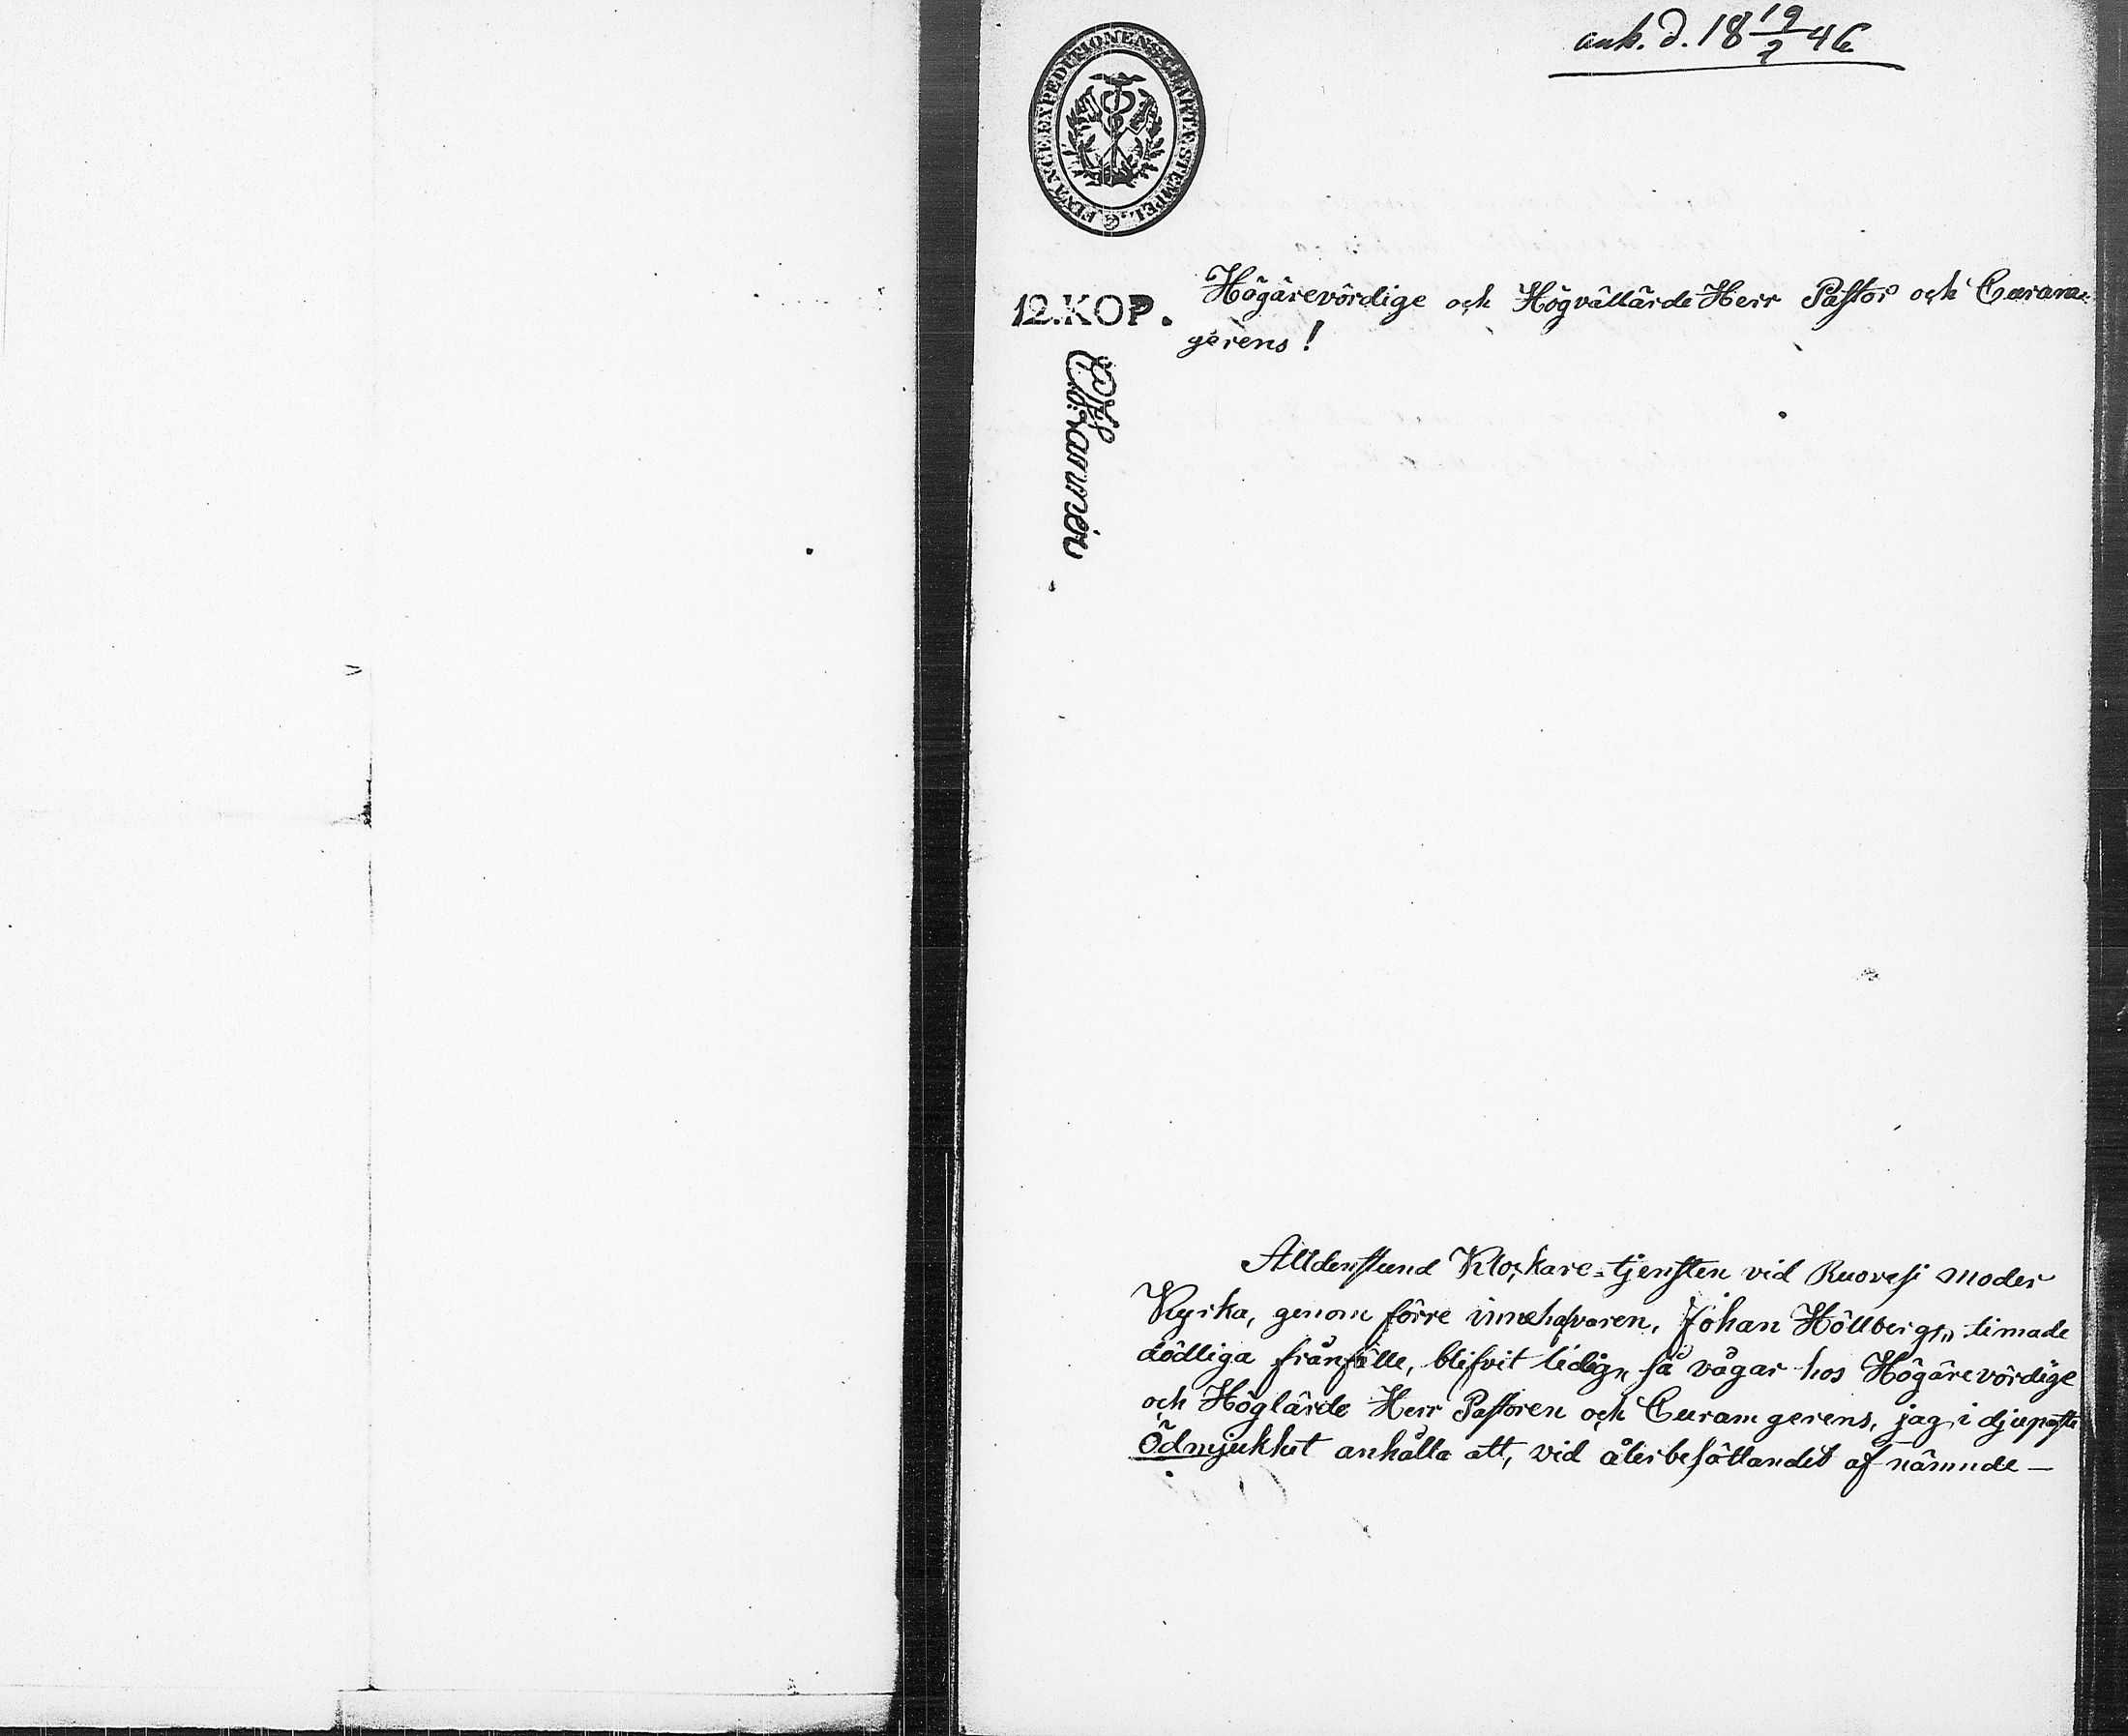 ank. d. 18 19/2 46
FINANCEEXPEDITIONENS CHARTÆ STEMPEL
12.KOP.
Högärevördige och Högvällärde Herr Pastor och Curam
gerens!
Alldenstund Klockare-tjensten vid Ruovesi Moder
Kyrka, genom förre innehafvaren, Johan Höllbergs,, timade
dödliga frånfälle, blifvit ledig,, så vågar hos Högärevördige
och Höglärde Herr Pastoren och Curam gerens, jag i djupaste
Ödmjukhet anhålla att, vid återbesättandet af nämnde —